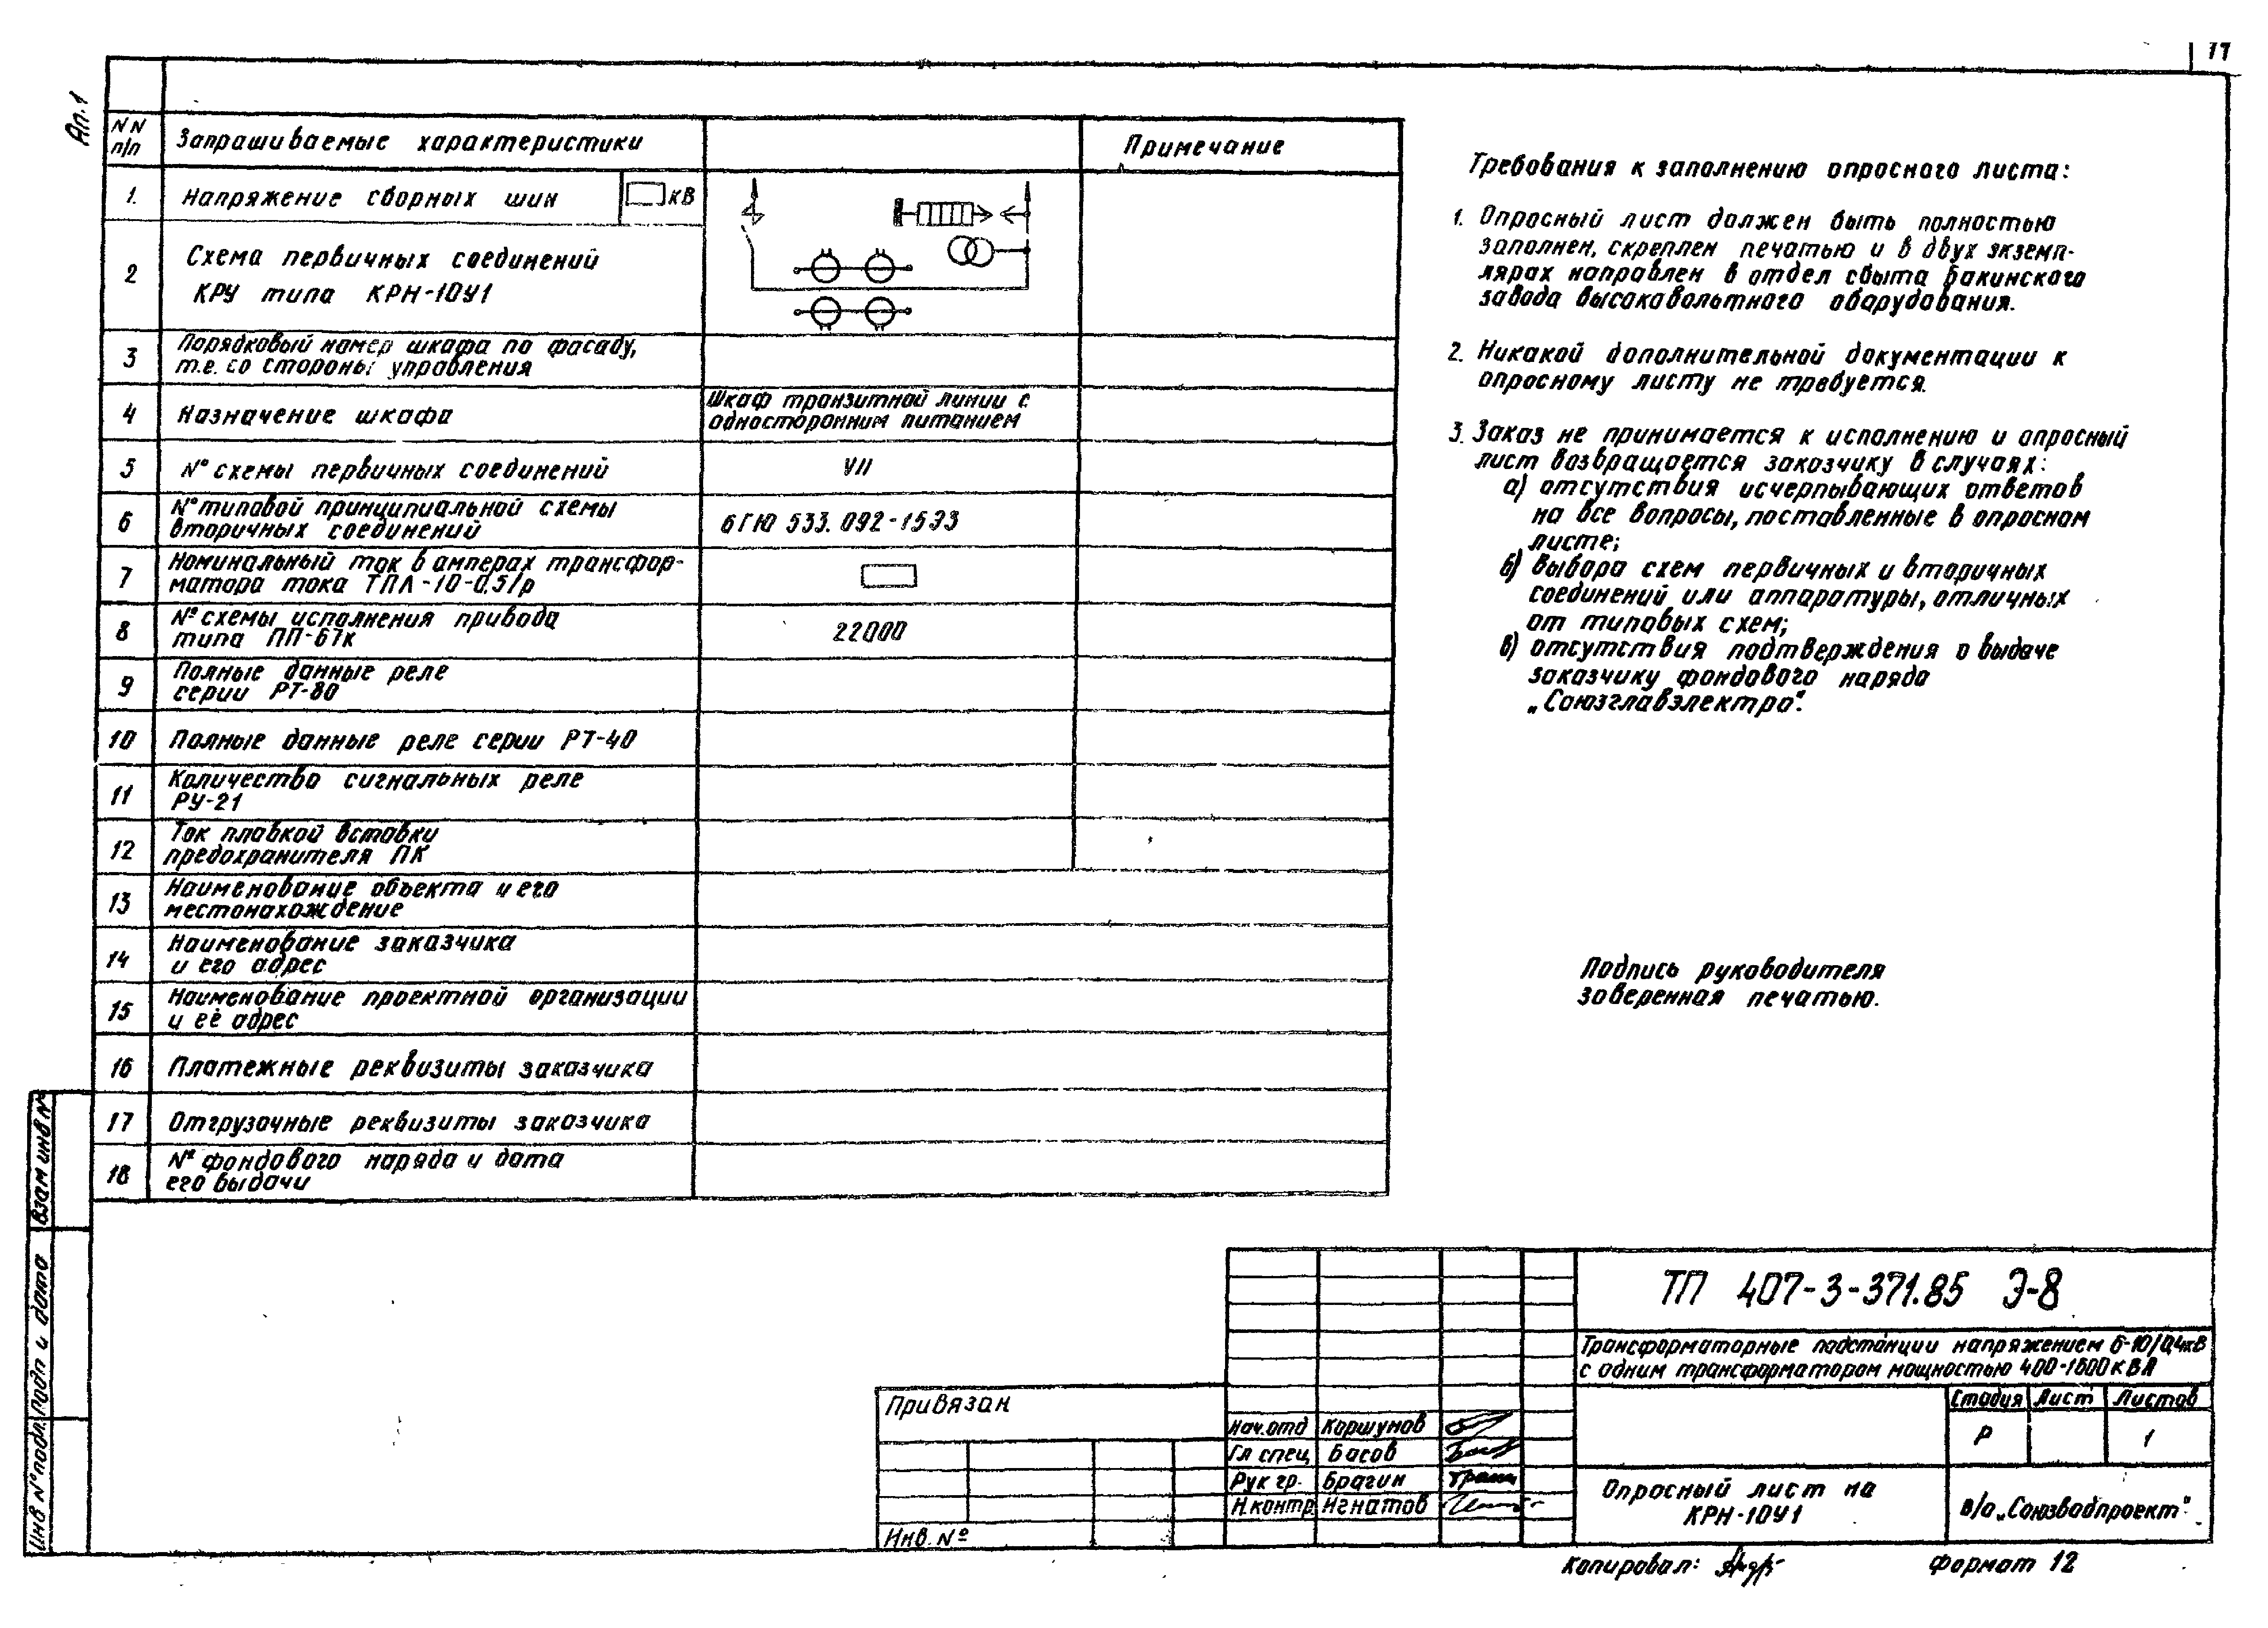 11
Ал.1
NN п/п
Запрашиваемые характеристики
Примечание
1. Напряжение сборных шин кВ
2 Схема первичных соединений
КРУ типа КРН-10У1
3 Порядковый номер шкафа по фасаду,
т.е. со стороны управления
4 Назначение шкафа
Шкаф транзитной линии с
односторонним питанием
5 № схемы первичных соединений
VII
6 № типовой принципиальной схемы
вторичных соединений
6ГЮ 533.092-15ЭЗ
7 Номинальный ток в амперах трансфор-
матора тока ТПЛ-10-0,5/р
8 № схемы исполнения привода
типа ПП-67к
22000
9 Полные данные реле
серии РТ-80
10 Полные данные реле серии РТ-40
11 Количество сигнальных реле
РУ-21
12 Ток плавкой вставки
предохранителя ПК
13 Наименование объекта и его
местонахождение
14 Наименование заказчика
и его адрес
15 Наименование проектной организации
и её адрес
16 Платежные реквизиты заказчика
17 Отгрузочные реквизиты заказчика
18 № фондового наряда и дата
его выдачи
Требования к заполнению опросного листа:
1. Опросный лист должен быть полностью
заполнен, скреплен печатью и в двух экземп-
лярах направлен в отдел сбыта Бакинского
завода высоковольтного оборудования.
2. Никакой дополнительной документации к
опросному листу не требуется.
3. Заказ не принимается к исполнению и опросный
лист возвращается заказчику в случаях:
а) отсутствия исчерпывающих ответов
на все вопросы, поставленные в опросном
листе;
б) выбора схем первичных и вторичных
соединений или аппаратуры, отличных
от типовых схем;
в) отсутствия подтверждения о выдаче
заказчику фондового наряда
„Союзглавэлектро".
Подпись руководителя
заверенная печатью.
Взам инв №
Подп и дата
Инв № подл.
Привязан
Инв. №
Нач.отд Коршунов
Гл спец Басов
Рук гр. Брагин
Н.контр. Игнатов
ТП 407-3-371.85 Э-8
Трансформаторные подстанции напряжением 6-10/0,4кВ
с одним трансформатором мощностью 400-1600 кВА
Стадия Лист Листов
Р 1
Опросный лист на
КРН-10У1
в/о „Союзводпроект".
Копировал:
Формат 12